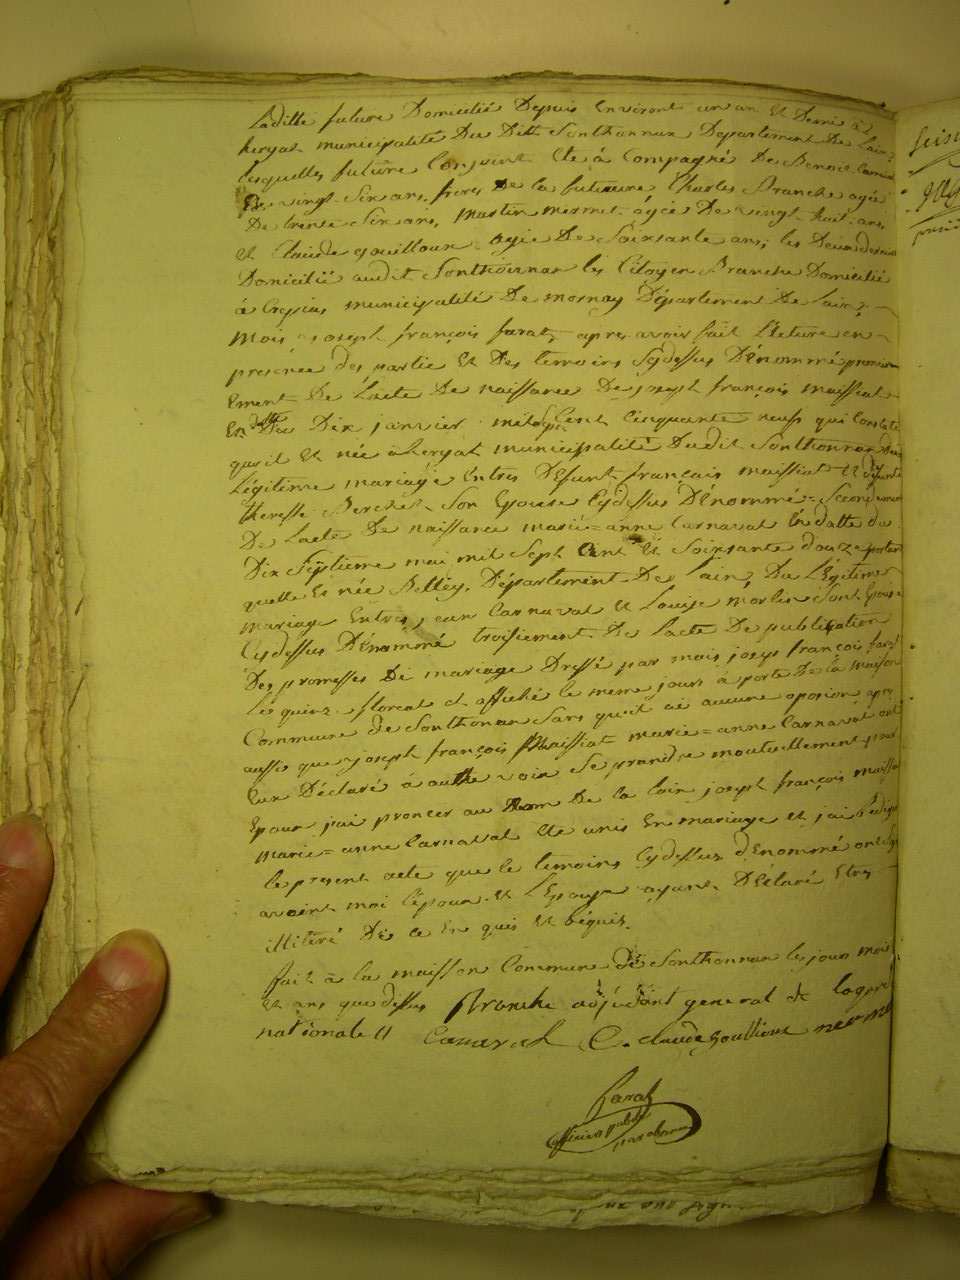 Laditte future Domicilié Depuis Environt un an et Demi à
heryat municipalité Du Dit Sonthonnax Departement De Lain,
lesquelles future Conjoint Ete à Compagné De Benoit Carnaval
De vingt Six ans, freres De la futeure Charles Branche agée
De trente Six ans, Martin mermet âgée De vingt huit ans,
et Claude gouilloux agée De Soixsante ans, les Deux dernier
Domicilié audit Sonthonnax le Citoyen Branche Domicilié
à Crepias municipalité De mornay Département De Lain,
Mois joseph françois farat, apres avoir fait Lécture en
presence des partie et Des temoins Cydessus Dénommé premier
ement De Lacte De naissance De joseph françois maissiat
En datte Du Dix janvier mil Sept Cent Cinquante neuf qui Constate
quil Et née à heryat municipalité Dudit Sonthonnax du
Légitime mariage Entres Défunt français maissiat Et défunte
theresse Berchet Son Epouse Cydessus Dénommé = Secondement
De Lacte De naissance marie = anne Carnaval En datte du
Dix Septieme mai mil Sept Cent Et Soixsante douze portant
quelle Et née Belley, Département De Lain, Du Légitime
mariage Entres, jean Carnaval et Louise morlin Sont Epouse
Cydessus Dénommé troisiement De Lacte De publication
Des promesses De mariage Dressé par mois joseph françois farat
Le quinz floreal et affiché le meme jours à porte De la maison
Commune de Sonthonax Sans quil aé aucune oposion apres
aussis que joseph françois Maissiat marie = anne Carnaval ont
Eux Déclaré à authe voix Se prandre moutuellement pour
Epoux jai proncer au Nom De la loix joseph françois maissiat
marie = anne Carnaval Ete unis En mariage et jai Rédigé
le present acte que le temoins Cydessus dénommé ont Signé
avoint moi lépoux et LEpouse ayant Déclaré Etres
illiteré De ce En quis et Réquis.
fait à la maisson Commune de Sonthonnax les jour mois
Et ans que dessus Branche adjudant general de la garde
nationale // Carnaval C. claude gouilloux mermet
Farat
officier public